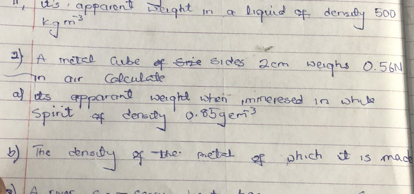 ii, it's apparent weight in a liquid of density 500
kgm⁻³
2) A metal Cube of sides 2cm weighs 0.56N
in air Calculate
a) its apparent weight when immeresed in white
Spirit of density 0.85gcm⁻³
b) The density of the metal of which it is mad